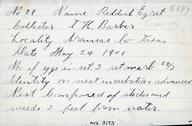 No 29 Name Reddish Egret
Collector F. H. Barber
Locality Aransas Co Texas
Date May 24 1901
No. of eggs in set 3 set mark 29/3
Identity on nest incubation advanced
Nest Composed of sticks and
weeds 2 feet from water.
MVZ 3173